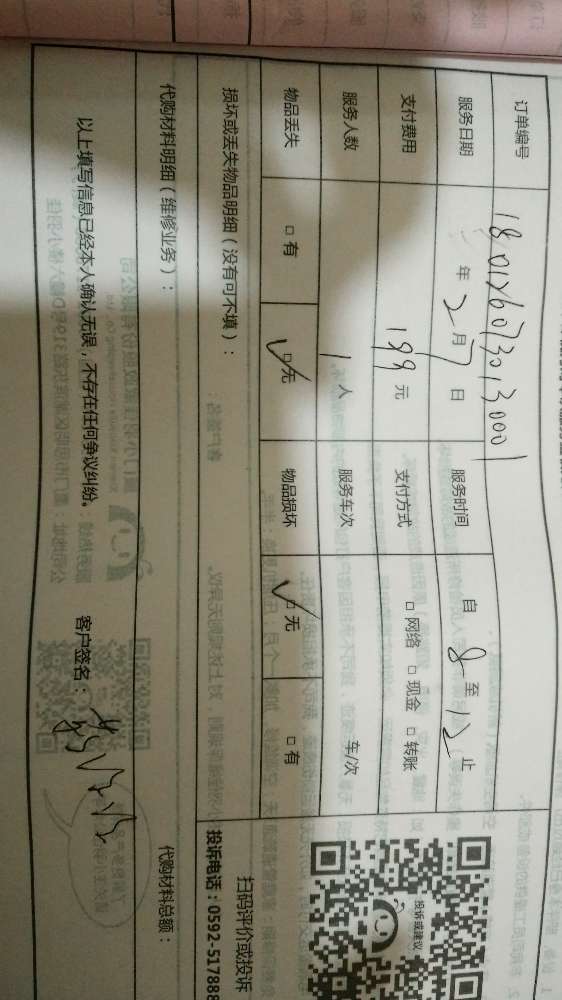 订单编号 180126073030001
服务日期 年 2月7日 服务时间 自 8 至 12 止
支付费用 199 元 支付方式 □网络 □现金 □转账
服务人数 1 人 服务车次 车/次
物品丢失 □有 ☑无 物品损坏 ☑无 □有
投诉或建议
扫码评价或投诉
投诉电话：0592-517888
损坏或丢失物品明细（没有可不填）：
代购材料明细（维修业务）： 代购材料总额：
以上填写信息已经本人确认无误，不存在任何争议纠纷。 客户签名：